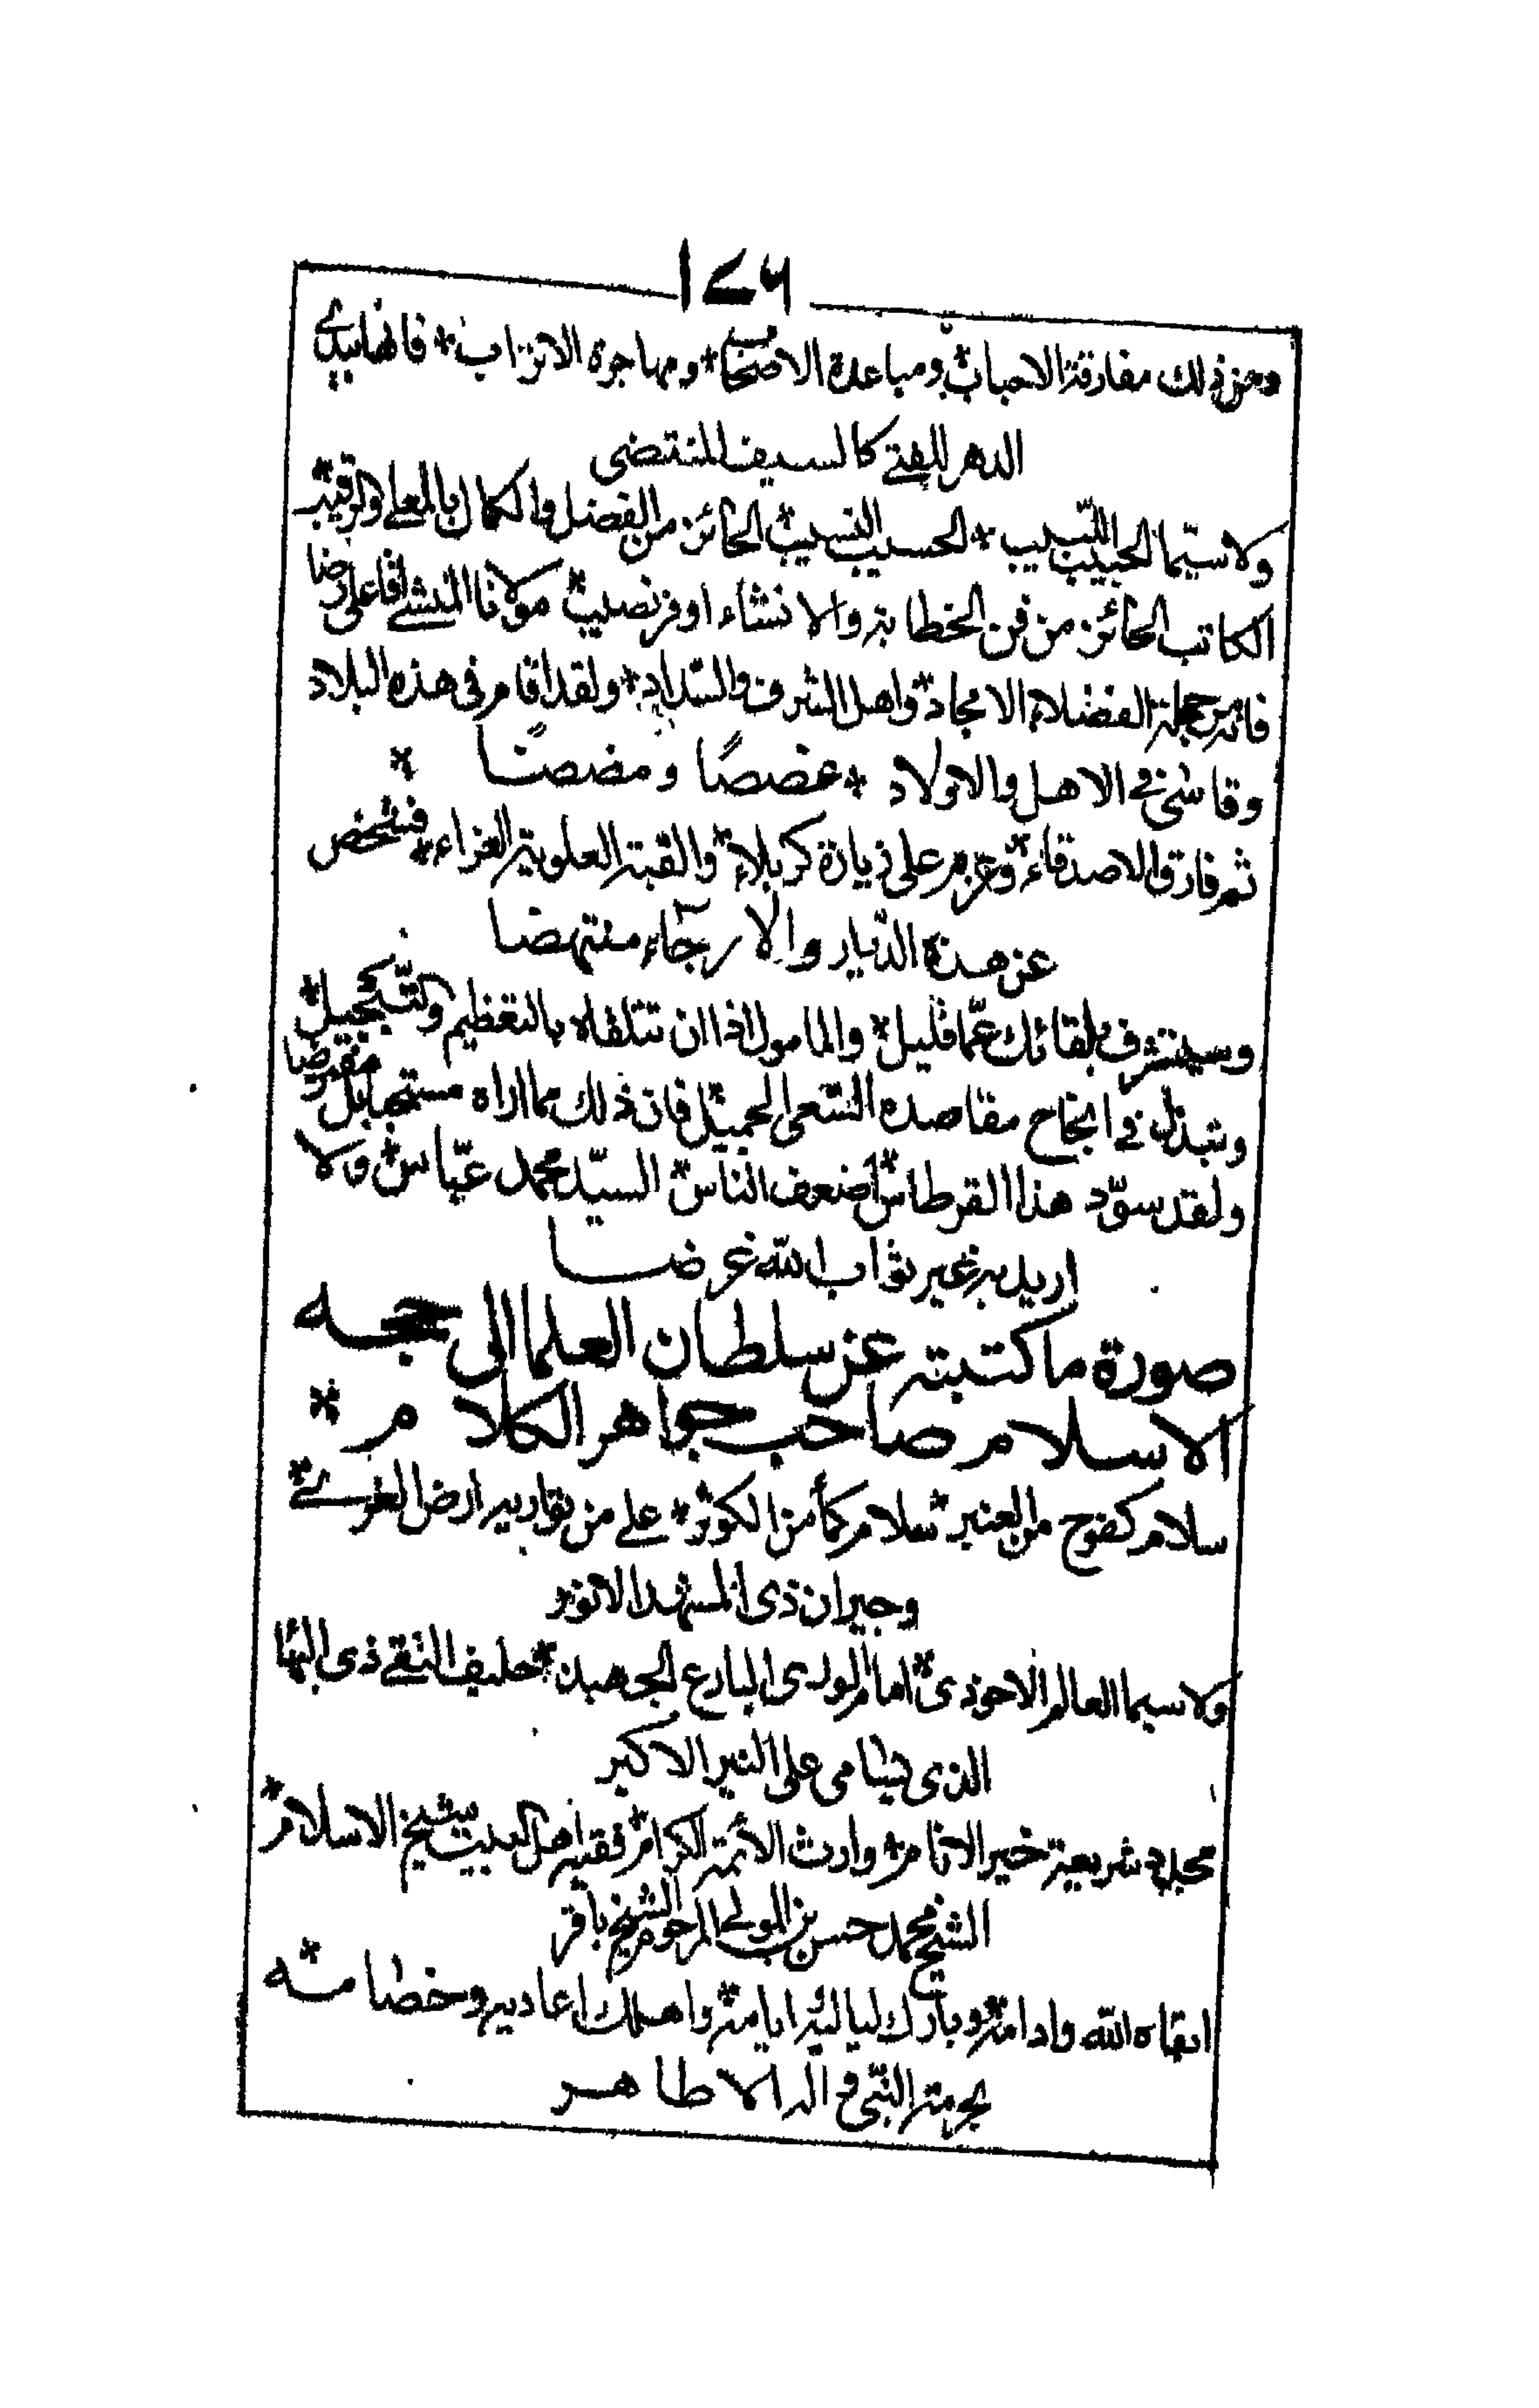 ١٤٦
ومن ذلك مفارقة الاحباب * ومباعدة الاصحاب * ومهاجرة الاتراب * فانهما بيدي
الدهر للفتى كالسيف المنتضى
ولا سيّما الحبيب اللّبيب * الحسيب النسيب * الحائز من الفضل والكمال بالمعلى والرقيب *
الكاتب الحائز من فن الخطابة والانشاء اوفر نصيب * مولانا المنشى اقا على رضا
فانه من جملة الفضلاء الامجاد * واهل الشرف والسّداد * ولقد اقام فى هذه البلاد
وقاسى فى الاهل والاولاد * غصصًا ومضضًا *
ثم فارق الاصدقاء * وعزم على زيارة كربلاء * والقبة العلوية الغراء * فشخص
عن هذه الدّيار والارجآء منتهضا
وسيتشرف بلقائك عمّا قليل * والمامول اذا ان تتلقاه بالتعظيم والتّبجيل *
وتبذل فى انجاح مقاصده السّعى الجميل * فان ذلك مما اراه مستحبا بل مفترضا
ولقد سوّد هذا القرطاس * اضعف الناس * السيّد محمد عبّاس * ولا
اريد به غير ثواب الله غرضا
صورة ما كتبته عن سلطان العلما الى حجه
الاسلام صاحب جواهر الكلام *
سلام كفوح من العنبر * سلام كمأ من الكوثر * على من بواديه ارض الغرى *
وجيران ذى المشهد الانور
ولا سيما العالم الاحوذى * امام الورى البارع الجهبذ * حليف التقى ذى البها
الذى يسامى على النير الاكبر
مجدد شريعة خير الانام * وارث الأئمة الكرام * فقيه اهل البيت شيخ الاسلام *
الشيخ محمد حسن بن المولى المرحوم الشيخ باقر
ابقاه الله وادامه * وبارك لياليه وايامه * واهلك اعاديه وخصامه *
بحرمة النّبى و اله الاطاهر